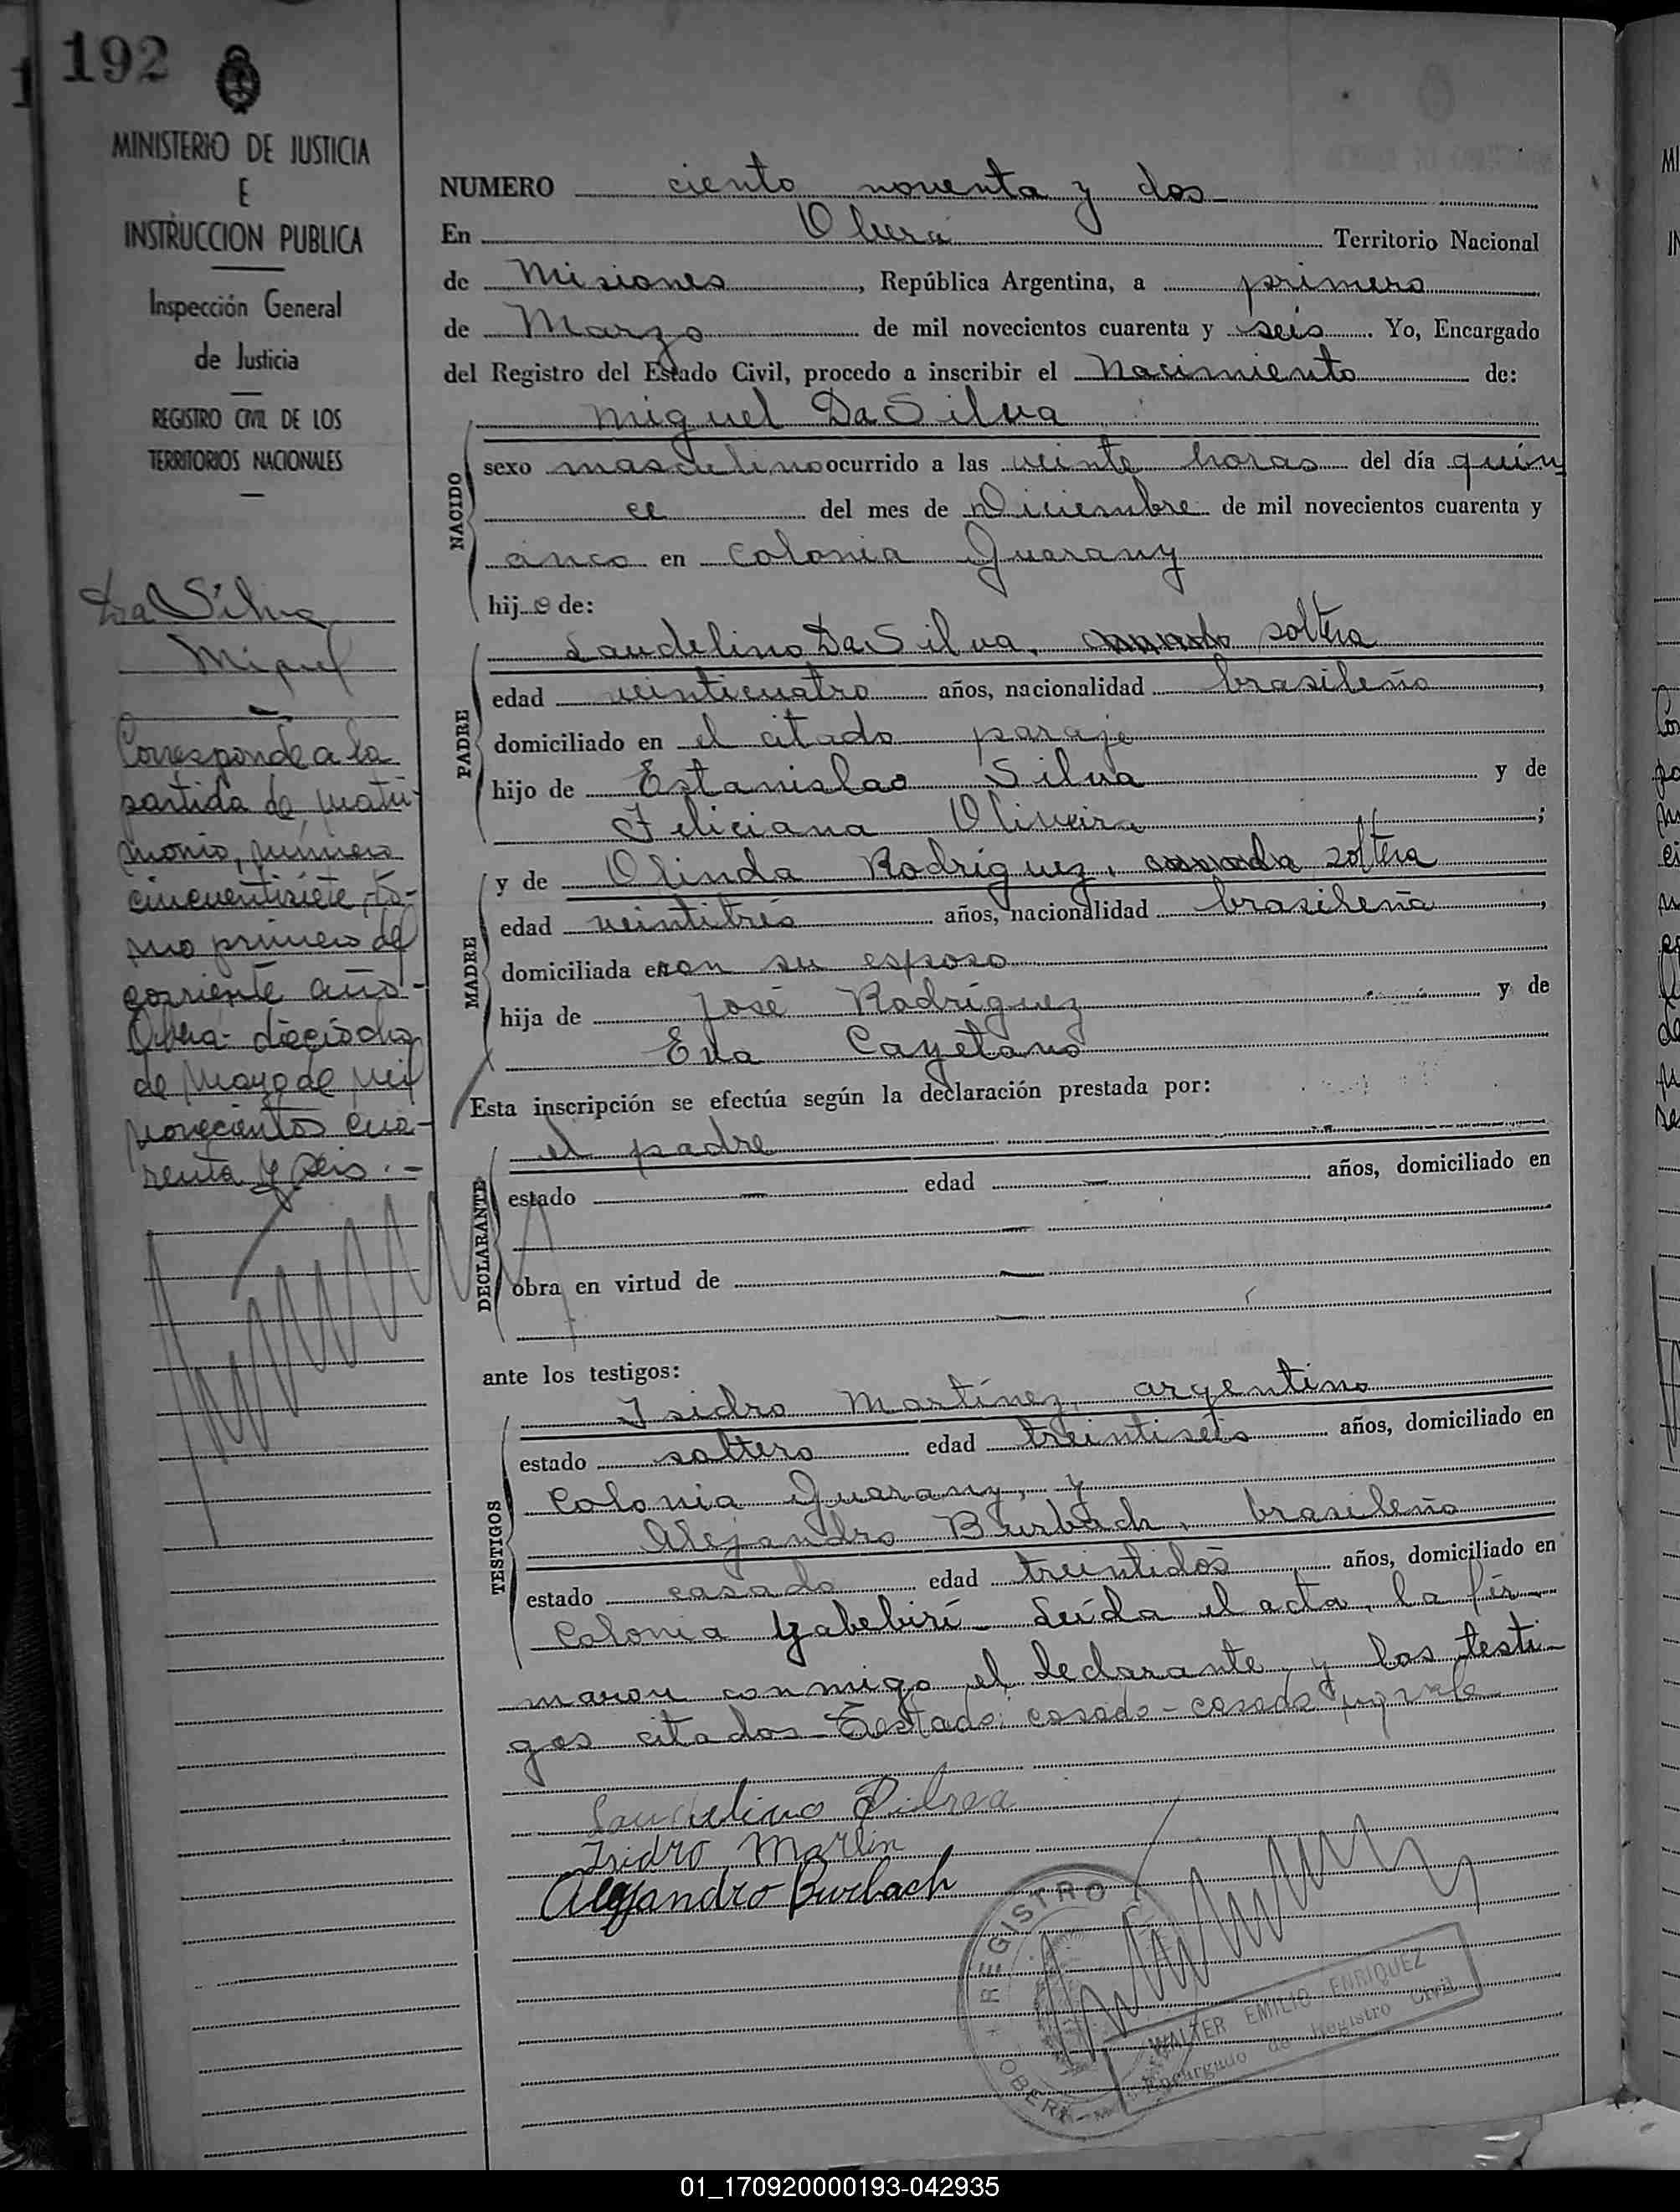 192
MINISTERIO DE JUSTICIA
E
INSTRUCCION PUBLICA
Inspección General
de Justicia
REGISTRO CIVIL DE LOS
TERRITORIOS NACIONALES
Da Silva
Miguel
Corresponde a la
partida de matri-
monio, número
cincuentisiete, to-
mo primero del
corriente año-
Oberá- dieciocho
de Mayo de mil
novecientos cua-
renta y seis.-
NUMERO ciento noventa y dos
En Oberá Territorio Nacional
de Misiones, República Argentina, a primero
de Marzo de mil novecientos cuarenta y seis. Yo, Encargado
del Registro del Estado Civil, procedo a inscribir el Nacimiento de:
Miguel Da Silva
NACIDO
sexo masculino ocurrido a las veinte horas del día quin
ce del mes de Diciembre de mil novecientos cuarenta y
cinco en Colonia Guarany
hijo de:
Laudelino Da Silva, casado soltero
PADRE
edad veinticuatro años, nacionalidad brasileño,
domiciliado en el citado paraje
hijo de Estanislao Silva y de
Feliciana Oliveira;
y de Olinda Rodríguez, casada soltera
MADRE
edad veintitrés años, nacionalidad brasileña,
domiciliada con su esposo
hija de José Rodríguez y de
Eva Cayetano
Esta inscripción se efectúa según la declaración prestada por:
el padre
DECLARANTE
estado — edad — años, domiciliado en
obra en virtud de —
ante los testigos:
Isidro Martínez, argentino
TESTIGOS
estado soltero edad treintiseis años, domiciliado en
Colonia Guarany, y
Alejandro Burbach, brasileño
estado casado edad treintidos años, domiciliado en
Colonia Yabebirí- Leída el acta, la fir-
maron conmigo el declarante y los testi-
gos citados- Testado: casado- casada no vale
Laudelino Silva
Isidro Martin
Alejandro Burbach
REGISTRO
OBERA
WALTER EMILIO ENRIQUEZ
Encargado de Registro Civil
01_170920000193-042935